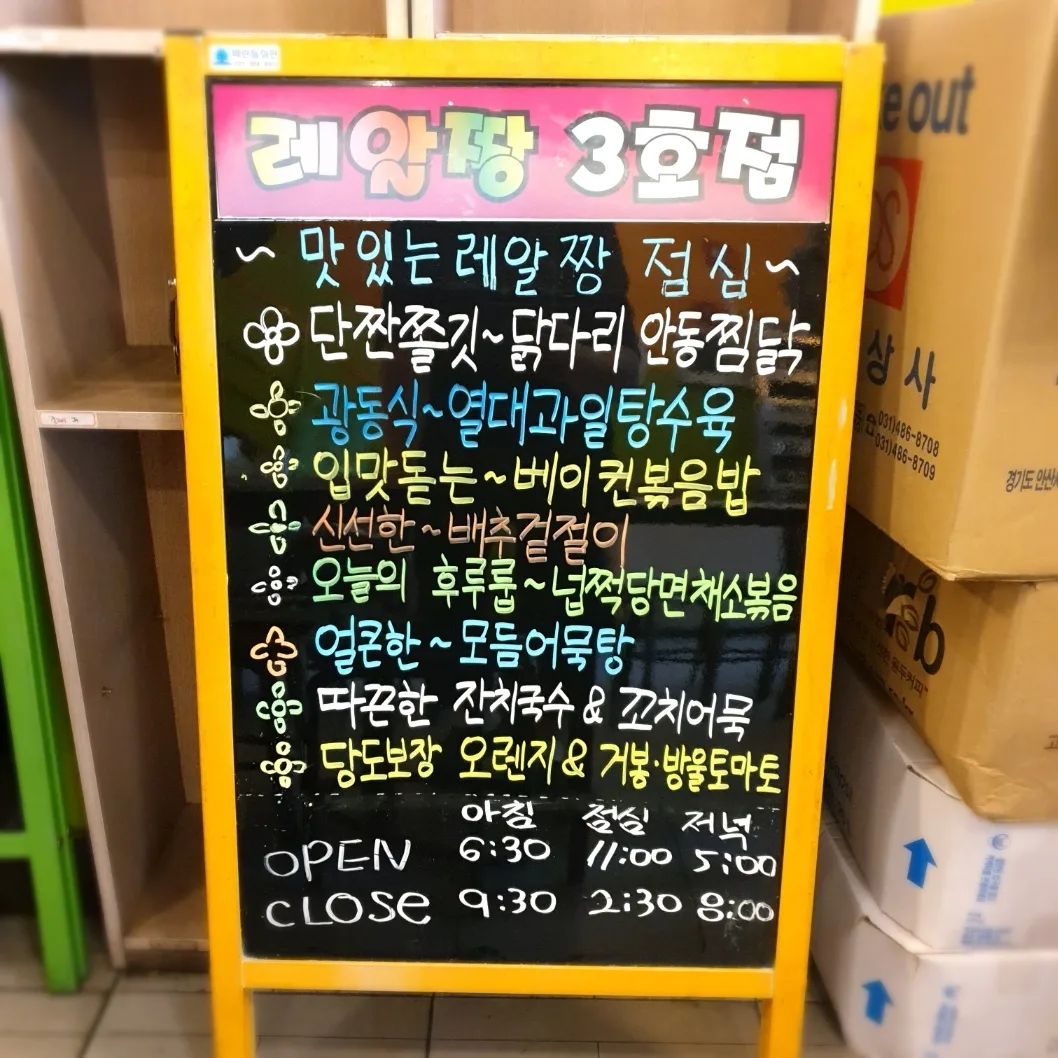 레알짱 3호점
~ 맛있는레알짱 점심 ~
단짠쫄깃~닭다리 안동찜닭
광동식~열대과일탕수육
입맛돋는~베이컨볶음밥
신선한~배추겉절이
오늘의 후루룹~넙쩍당면채소볶음
얼큰한~모듬어묵탕
따끈한 잔치국수 & 꼬치어묵
당도보장 오렌지 & 거봉·방울토마토
아침 점심 저녁
OPEN 6:30 11:00 5:00
CLOSe 9:30 2:30 8:00
out
상사
031)486-8708
031)486-8709
경기도 안산시